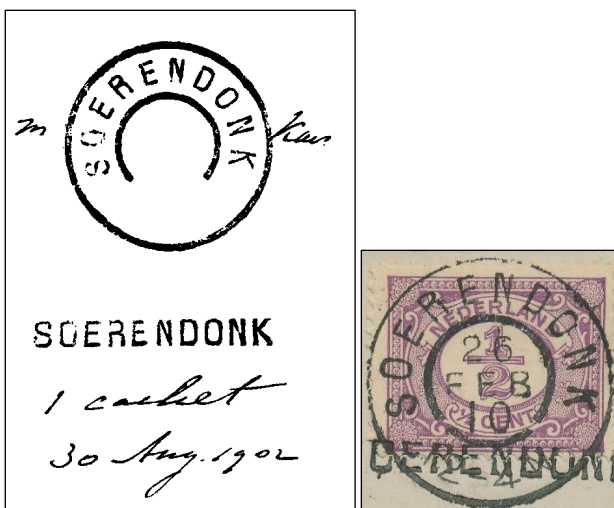 SOERENDONK
SOERENDONK
1 cachet
30 Aug. 1902
SOERENDONK
NEDERLAND
1/2
26
FEB
10
½ CENT
OERENDONK